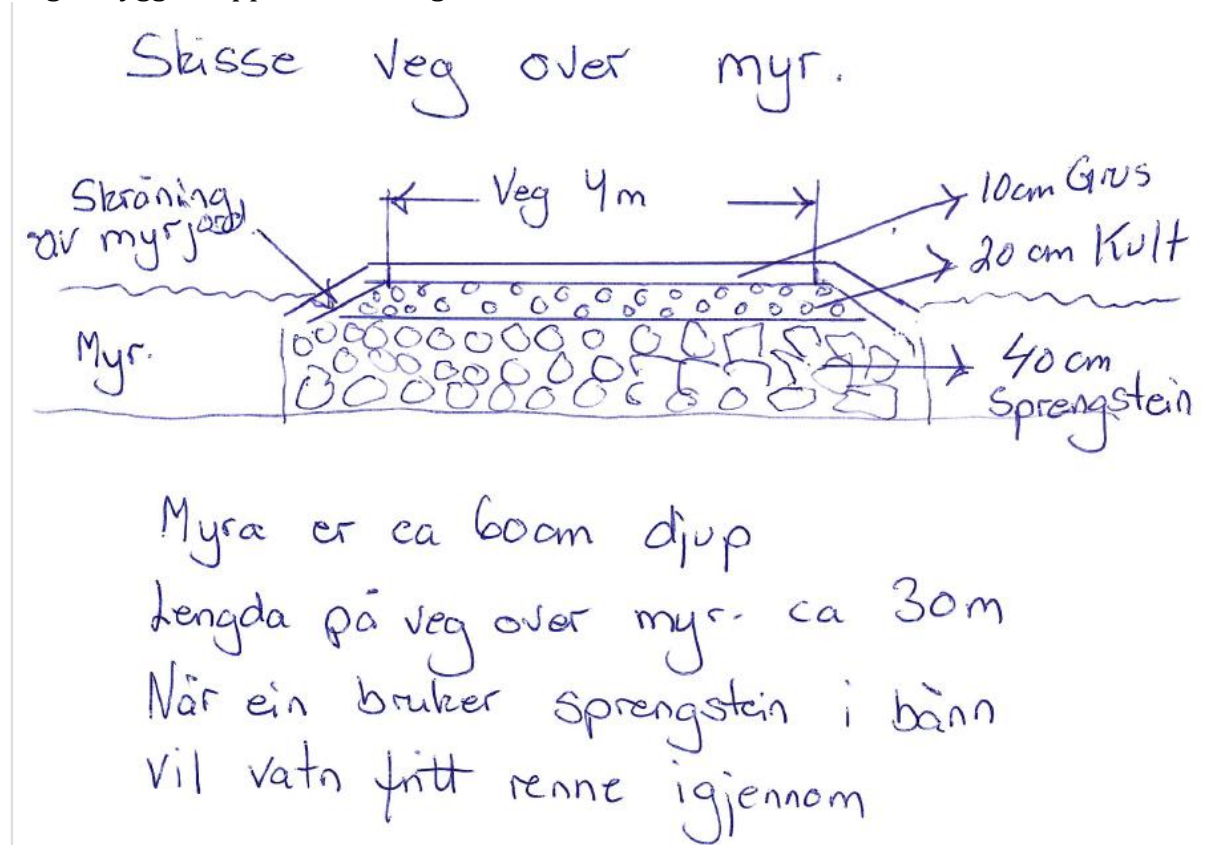 Skisse veg over myr.
Veg 4m
10cm Grus
Skråning
av myrjord.
20 cm Kult
Myr.
40 cm
Sprengstein
Myra er ca 60cm djup
Lengda på veg over myr. ca 30m
Når ein bruker sprengstein i bånn
vil vatn fritt renne igjennom